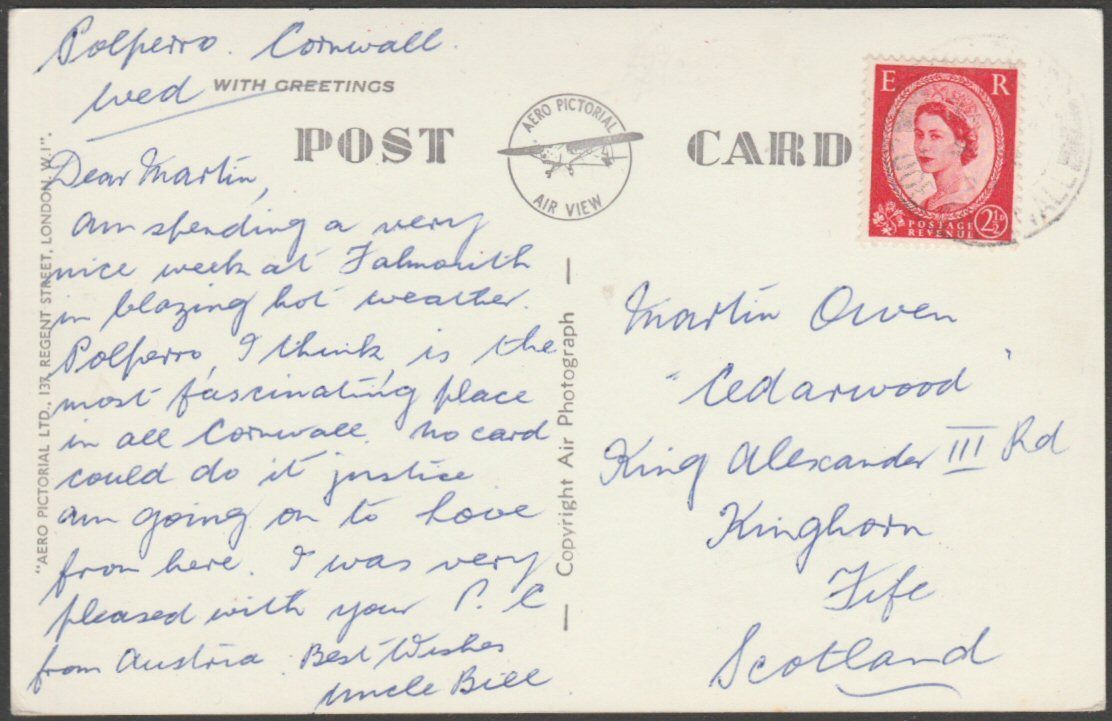 Polperro. Cornwall.
Wed
WITH GREETINGS
POST CARD
AERO PICTORIAL
AIR VIEW
E R
POSTAGE
REVENUE
2½D
Dear Martin,
Am spending a very
nice week at Falmouth
in blazing hot weather.
Polperro, I think, is the
most fascinating place
in all Cornwall. No card
could do it justice
am going on to Looe
from here. I was very
pleased with your P. C
from Austria. Best Wishes
Uncle Bill
"AERO PICTORIAL LTD., 137, REGENT STREET, LONDON, W.1".
Copyright Air Photograph
Martin Owen
"Cedarwood"
King Alexander III Rd
Kinghorn
Fife
Scotland